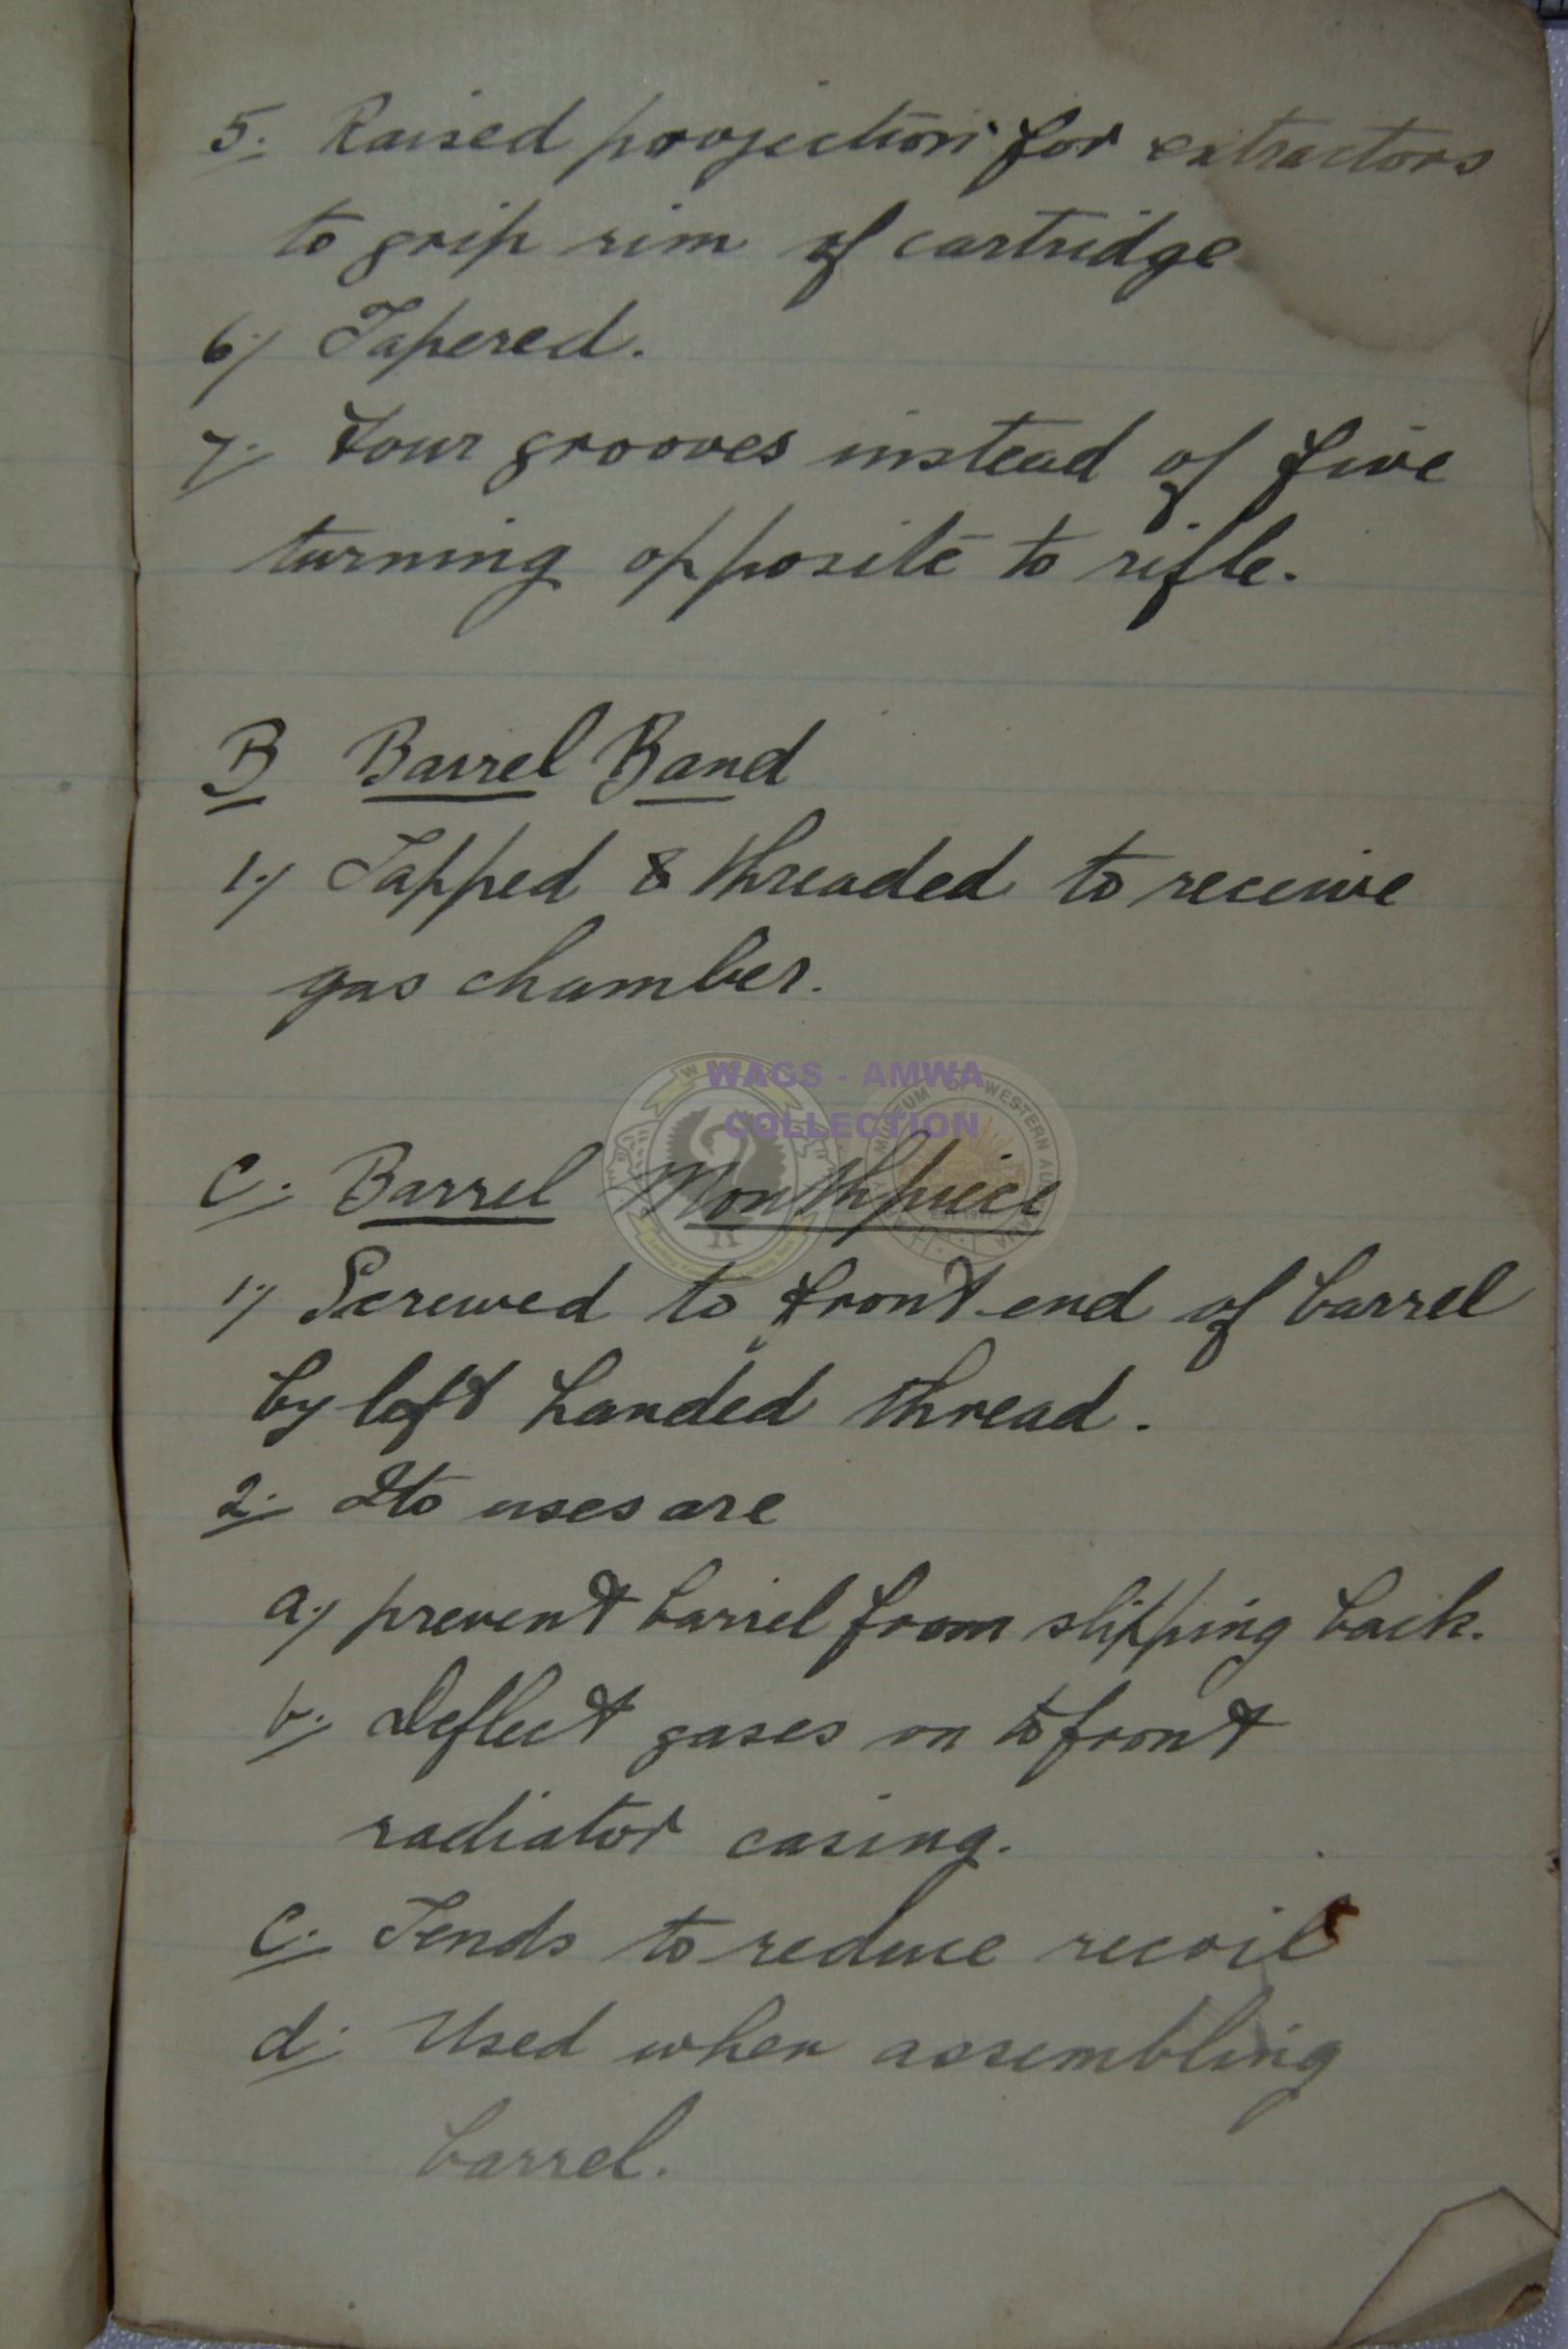 5. Raised projection for extractors
to grip rim of cartridge
6/ Tapered.
7. Four grooves instead of five
turning opposite to rifle.
B Barrel Band
1/ Tapped & threaded to receive
gas chamber.
WAGS - AMWA
COLLECTION
C. Barrel Mouthpiece
1/ Screwed to front end of barrel
by left handed thread.
2. Its uses are
a/ prevent barrel from slipping back.
b. Deflect gases on to front
radiator casing.
c. Tends to reduce recoil
d. Used when assembling
barrel.